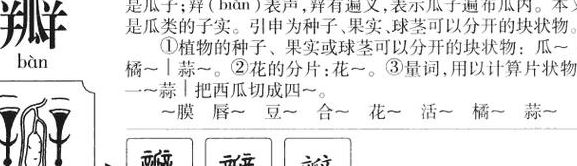 是瓜子;辡(biàn)表声,辡有遍义,表示瓜子遍布瓜内。本
瓣
是瓜类的子实。引申为种子、果实、球茎可以分开的块状物。
bàn
①植物的种子、果实或球茎可以分开的块状物:瓜~
橘~|蒜~。②花的分片:花~。③量词,用以计算片状物
一~蒜|把西瓜切成四~。
~膜 唇~ 豆~ 合~ 花~ 活~ 橘~ 蒜~
瓣 瓣 瓣